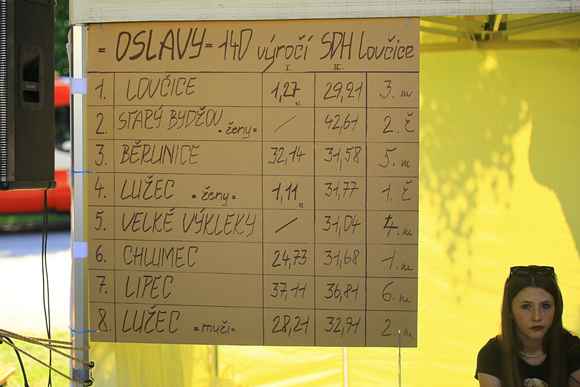 = OSLAVY = 140 výročí SDH Lovčice
I. II.
1. LOVČICE 1,27 29,21 3. m
2. STARÝ BYDŽOV = ženy = / 42,61 2. ž
3. BĚRUNICE 32,14 31,58 5. m
4. LUŽEC = ženy = 1,11 31,77 1. ž
5. VELKÉ VÝKLEKY / 31,04 4. m
6. CHLUMEC 24,73 31,68 1. m
7. LIPEC 37,11 36,81 6. m
8. LUŽEC = muži = 28,21 32,91 2. m